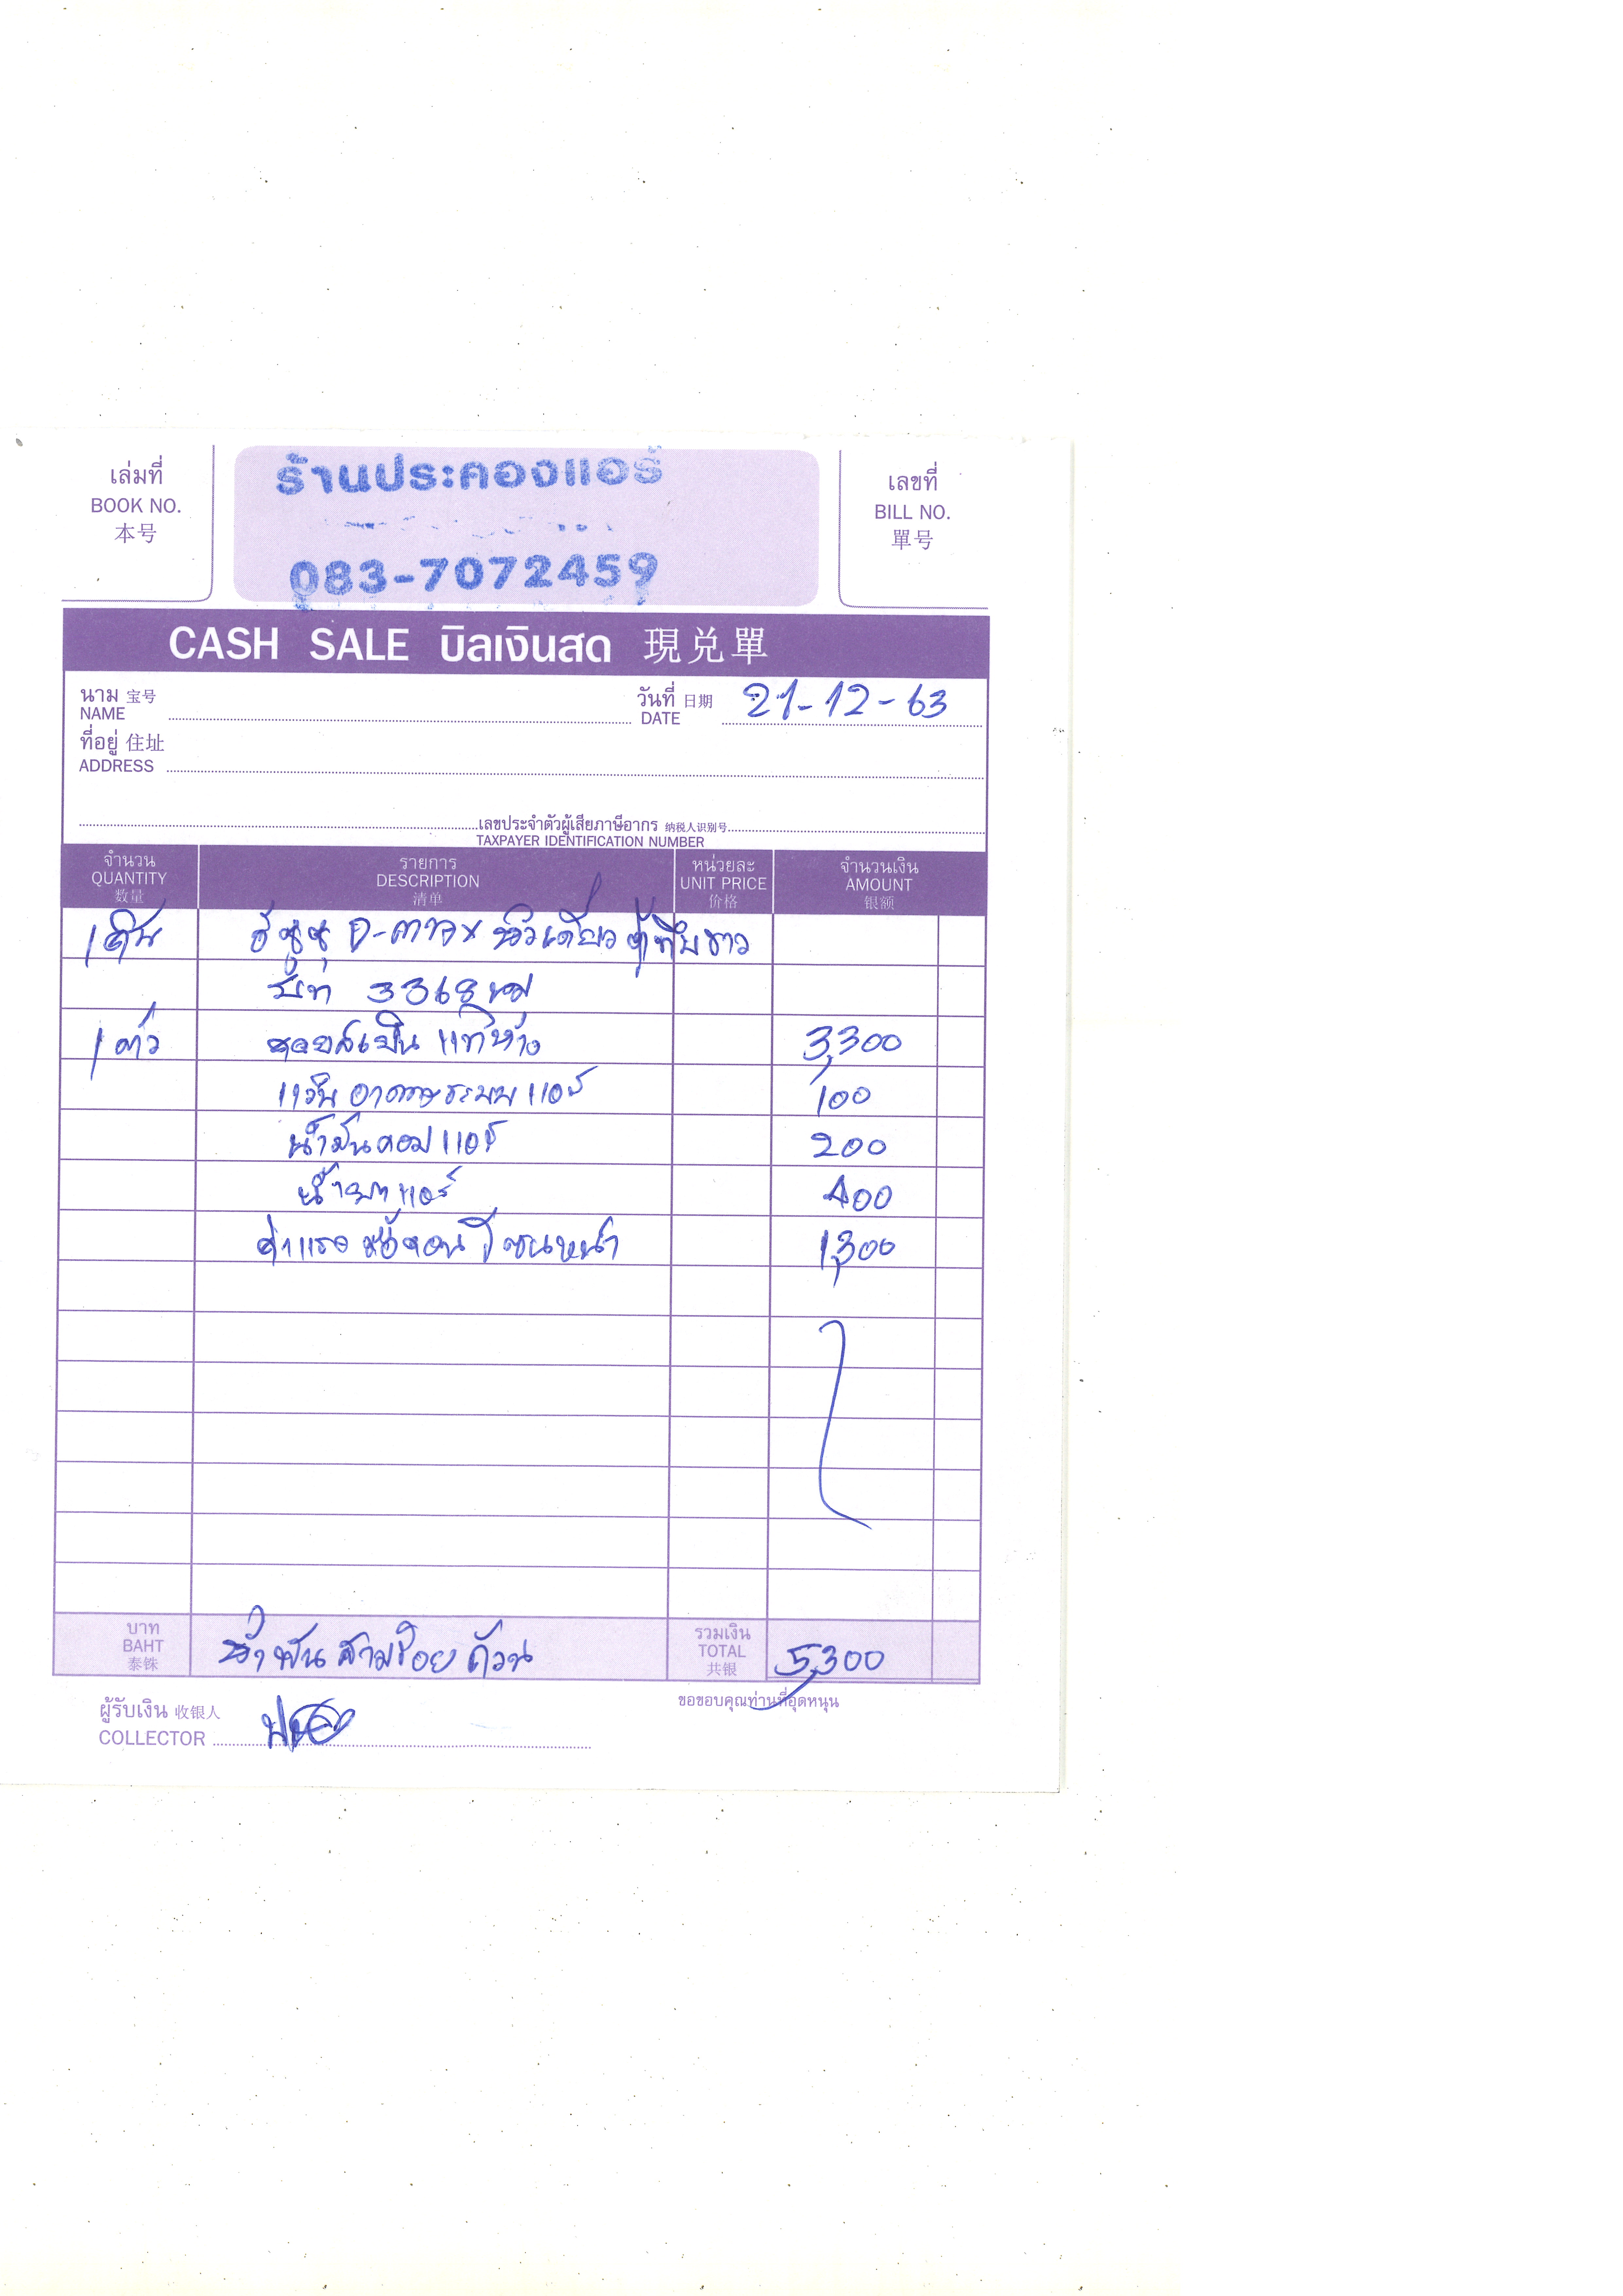 เล่มที่
BOOK NO.
本号
ร้านประคองแอร์
083-7072459
เลขที่
BILL NO.
單号
CASH SALE บิลเงินสด 現兑單
นาม 宝号
NAME
วันที่ 日期
DATE
21-12-63
ที่อยู่ 住址
ADDRESS
เลขประจำตัวผู้เสียภาษีอากร 纳税人识别号
TAXPAYER IDENTIFICATION NUMBER
จำนวน
QUANTITY
数量
รายการ
DESCRIPTION
清单
หน่วยละ
UNIT PRICE
价格
จำนวนเงิน
AMOUNT
银额
1 คัน อีซูซุ D-max หัวเดียว ตู้ทึบขาว
3368
1 ตัว คอยล์เย็น แท้ห้าง 3,300
แวคั่ม อากาศระบบแอร์ 100
น้ำมันคอมแอร์ 200
น้ำยาแอร์ 400
ค่าแรง คอนโซนหน้า 1,300
บาท
BAHT
泰铢
ห้าพันสามร้อยถ้วน
รวมเงิน
TOTAL
共银
5,300
ผู้รับเงิน 收银人
COLLECTOR
ขอขอบคุณท่านที่อุดหนุน